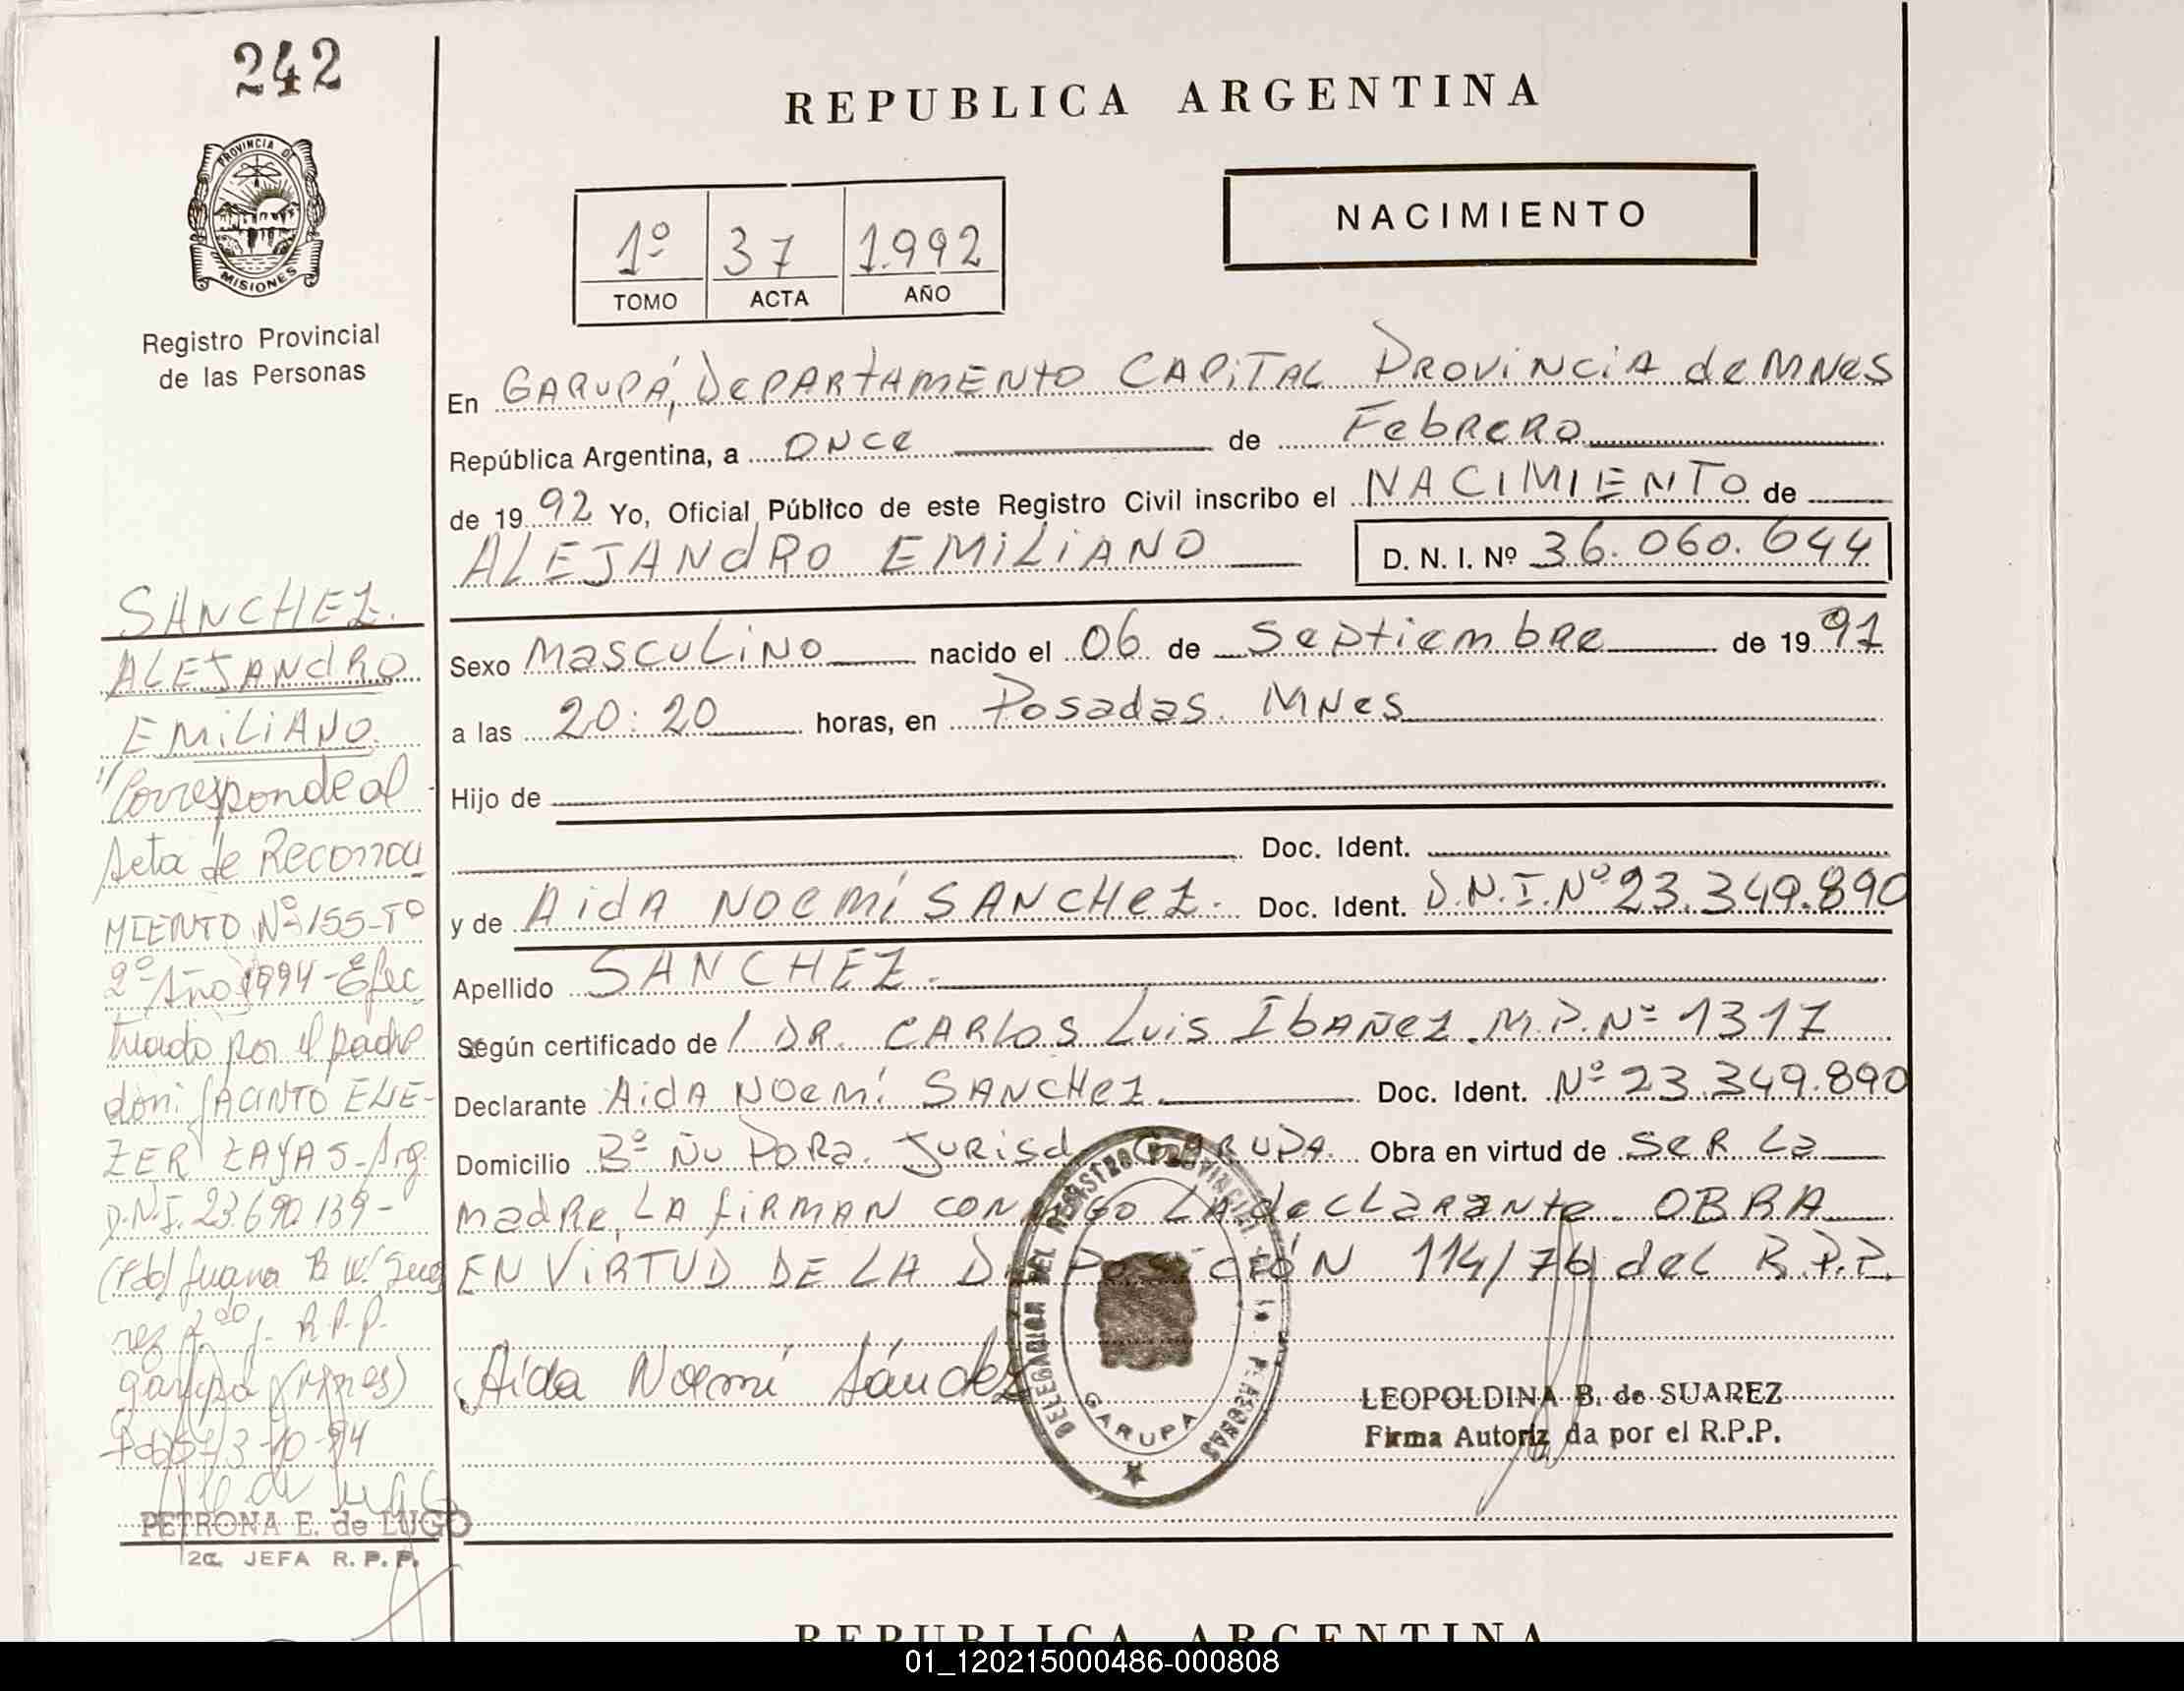 242
PROVINCIA DE
MISIONES
Registro Provincial
de las Personas
SANCHEZ.
ALEJANDRO
EMILIANO
"Corresponde al
Acta de Reconoci
MIENTO Nº 155-Tº
2º Año 1994-Efec
tuado por el padre
don: JACINTO ELIE-
ZER ZAYAS-Arg.
D.N.I. 23.690.139-
(Fdo) Juana B.
R.P.P.
Garupá (Mnes)
3-10-94
PETRONA E. de LUGO
2a. JEFA R. P. P.
REPUBLICA ARGENTINA
1º 37 1.992
TOMO ACTA AÑO
NACIMIENTO
En GARUPÁ, DePARtAMENtO CAPiTAL PROViNCiA de MNes
República Argentina, a ONce de FebReRO
de 1992 Yo, Oficial Público de este Registro Civil inscribo el NACIMIENTO de
ALEJANdRO EMiLiANO D. N. I. Nº 36.060.644
Sexo MascuLiNO nacido el 06 de Septiembre de 1991
a las 20:20 horas, en Posadas. MNes
Hijo de
Doc. Ident.
y de AidA NOemí SANCHeZ. Doc. Ident. D.N.I.Nº23.349.890
Apellido SANCHEZ.
Según certificado de / DR. CARLOS Luis IbAÑeZ. M.P.Nº 1317
Declarante AidA NOemí SANCHeZ Doc. Ident. Nº 23.349.890
Domicilio Bº Ñu PORa. JURisd. GARUPA. Obra en virtud de SeR La
madRe, LA fiRMAN CONMIGO LA decLaRante. OBRA
EN ViRTUD DE LA DISPOSICIÓN 114/76 del R.P.P.
Aída Noemí Sánchez
DELEGACION DEL REGISTRO PROVINCIAL de las PERSONAS
GARUPA
LEOPOLDINA B. de SUAREZ
Firma Autorizada por el R.P.P.
REPUBLICA ARGENTINA
01_120215000486-000808